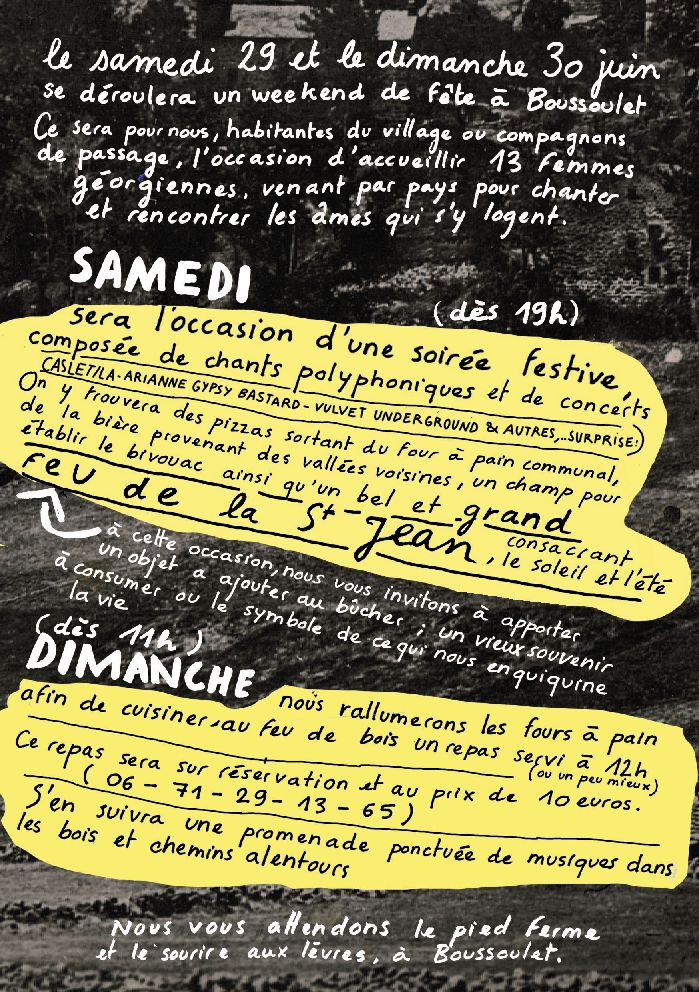 le samedi 29 et le dimanche 30 juin
se déroulera un weekend de fête à Boussoulet
Ce sera pour nous, habitantes du village ou compagnons
de passage, l'occasion d'accueillir 13 femmes
géorgiennes, venant par pays pour chanter
et rencontrer les âmes qui s'y logent.
SAMEDI
(dès 19h)
sera l'occasion d'une soirée festive,
composée de chants polyphoniques et de concerts
(CASLET/LA - ARIANNE GYPSY BASTARD - VULVET UNDERGROUND & AUTRES,...SURPRISE!)
On y trouvera des pizzas sortant du four à pain communal,
de la bière provenant des vallées voisines, un champ pour
établir le bivouac ainsi qu'un bel et grand
feu de la St-Jean, consacrant
le soleil et l'été
à cette occasion, nous vous invitons à apporter
un objet a ajouter au bûcher ; un vieux souvenir
à consumer ou le symbole de ce qui nous enquiquine
la vie
(dès 11h)
DIMANCHE
nous rallumerons les fours à pain
afin de cuisiner au feu de bois un repas servi à 12h
(ou un peu mieux)
Ce repas sera sur réservation et au prix de 10 euros.
(06-71-29-13-65)
S'en suivra une promenade ponctuée de musiques dans
les bois et chemins alentours
Nous vous attendons le pied ferme
et le sourire aux lèvres, à Boussoulet.